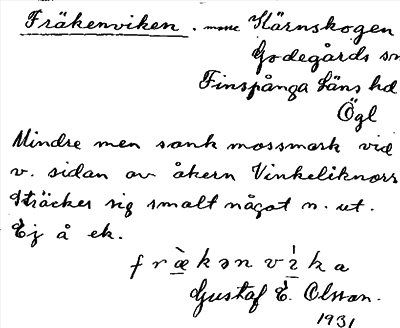 Fräkenviken. Kärnskogen
Godegårds sn
Finspånga läns hd
Ögl
Mindre men sank mossmark vid
v. sidan av åkern Vinkeliknorr
Sträcker sig smalt något n. ut.
Ej å ek.
fræ̀kən vìka
Gustaf E. Olsson.
1931